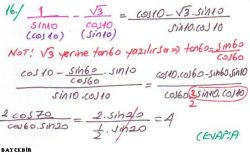 16-) 1/sin10 - √3/cos10 = (cos10 - √3.sin10)/(sin10.cos10)
(cos10) (sin10)
NOT! √3 yerine tan60 yazılırsa → tan60 = sin60/cos60
(cos10 - sin60/cos60 . sin10)/(sin10.cos10) = (cos10.cos60 - sin60.sin10)/(cos60.2/2 sin10.cos10)
2.cos70/(cos60.sin20) = 2.sin20/(1/2.sin20) = 4
(CEVAP:A
BAYÇEBİR